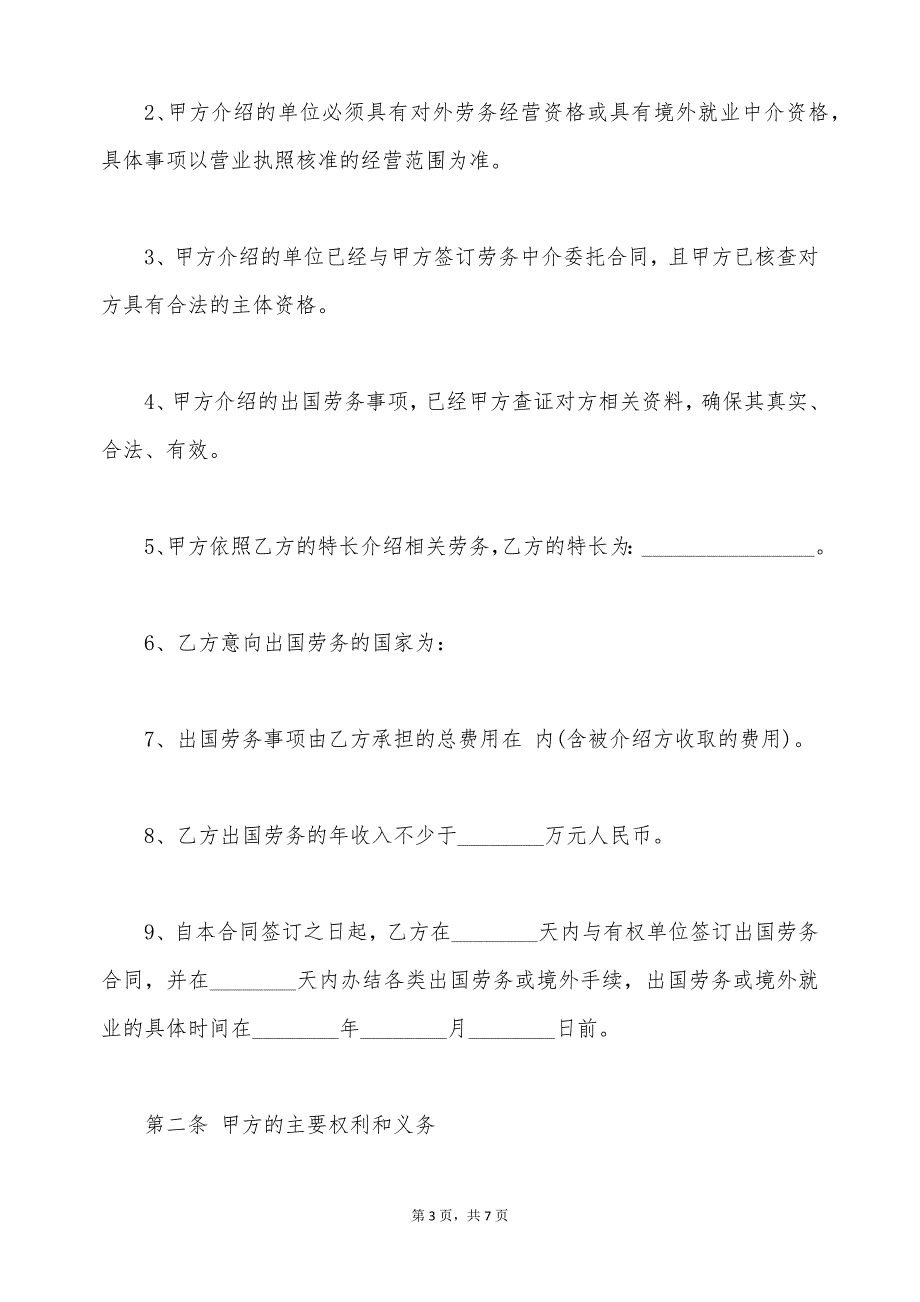 2、甲方介绍的单位必须具有对外劳务经营资格或具有境外就业中介资格，
具体事项以营业执照核准的经营范围为准。
3、甲方介绍的单位已经与甲方签订劳务中介委托合同，且甲方已核查对
方具有合法的主体资格。
4、甲方介绍的出国劳务事项，已经甲方查证对方相关资料，确保其真实、
合法、有效。
5、甲方依照乙方的特长介绍相关劳务，乙方的特长为：________________。
6、乙方意向出国劳务的国家为：
7、出国劳务事项由乙方承担的总费用在 内(含被介绍方收取的费用)。
8、乙方出国劳务的年收入不少于________万元人民币。
9、自本合同签订之日起，乙方在________天内与有权单位签订出国劳务
合同，并在________天内办结各类出国劳务或境外手续，出国劳务或境外就
业的具体时间在________年________月________日前。
第二条 甲方的主要权利和义务
第 3 页，共 7 页